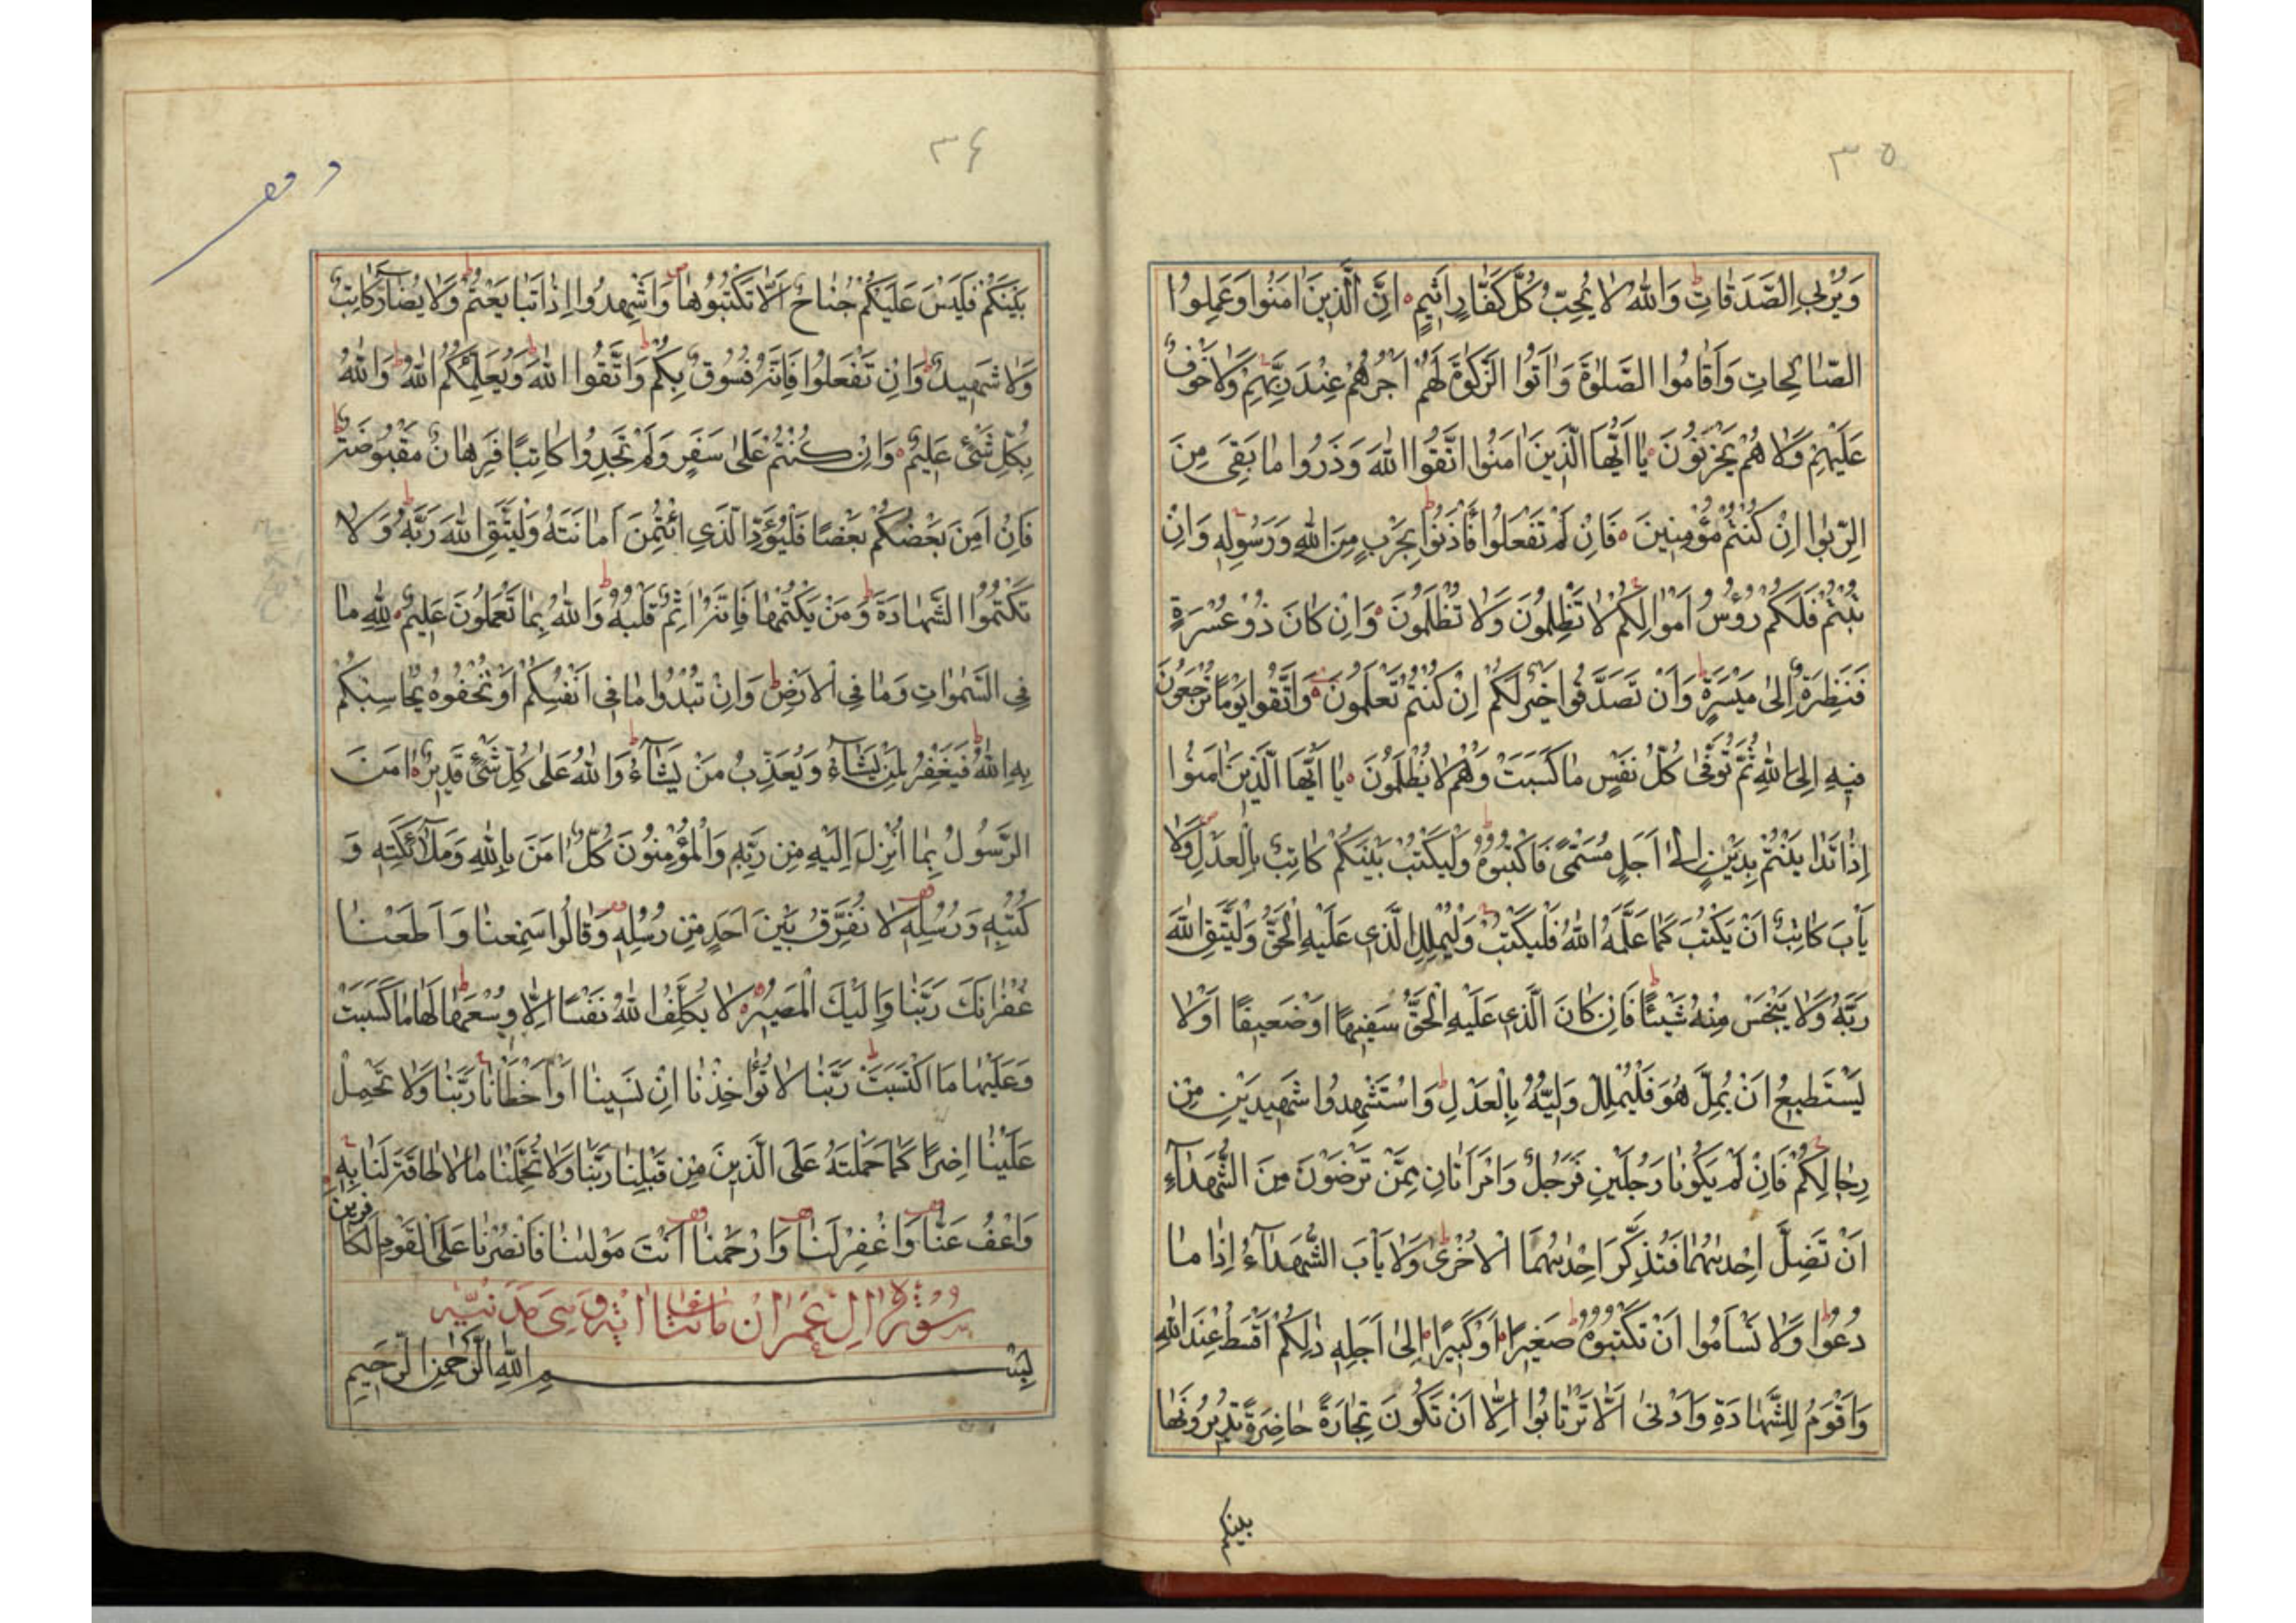 ٣٥
وَيُرْبِي الصَّدَقَاتِ وَاللّٰهُ لَا يُحِبُّ كُلَّ كَفَّارٍ اَثِيمٍ اِنَّ الَّذِينَ اٰمَنُوا وَعَمِلُوا
الصَّالِحَاتِ وَاَقَامُوا الصَّلٰوةَ وَاٰتَوُا الزَّكٰوةَ لَهُمْ اَجْرُهُمْ عِنْدَ رَبِّهِمْ وَلَا خَوْفٌ
عَلَيْهِمْ وَلَا هُمْ يَحْزَنُونَ يَا اَيُّهَا الَّذِينَ اٰمَنُوا اتَّقُوا اللّٰهَ وَذَرُوا مَا بَقِيَ مِنَ
الرِّبٰوا اِنْ كُنْتُمْ مُؤْمِنِينَ فَاِنْ لَمْ تَفْعَلُوا فَأْذَنُوا بِحَرْبٍ مِنَ اللّٰهِ وَرَسُولِهِ وَاِنْ
تُبْتُمْ فَلَكُمْ رُؤُسُ اَمْوَالِكُمْ لَا تَظْلِمُونَ وَلَا تُظْلَمُونَ وَاِنْ كَانَ ذُوْ عُسْرَةٍ
فَنَظِرَةٌ اِلٰى مَيْسَرَةٍ وَاَنْ تَصَدَّقُوا خَيْرٌ لَكُمْ اِنْ كُنْتُمْ تَعْلَمُونَ وَاتَّقُوا يَوْمًا تُرْجَعُونَ
فِيهِ اِلَى اللّٰهِ ثُمَّ تُوَفّٰى كُلُّ نَفْسٍ مَا كَسَبَتْ وَهُمْ لَا يُظْلَمُونَ يَا اَيُّهَا الَّذِينَ اٰمَنُوا
اِذَا تَدَايَنْتُمْ بِدَيْنٍ اِلٰى اَجَلٍ مُسَمًّى فَاكْتُبُوهُ وَلْيَكْتُبْ بَيْنَكُمْ كَاتِبٌ بِالْعَدْلِ وَلَا
يَأْبَ كَاتِبٌ اَنْ يَكْتُبَ كَمَا عَلَّمَهُ اللّٰهُ فَلْيَكْتُبْ وَلْيُمْلِلِ الَّذِي عَلَيْهِ الْحَقُّ وَلْيَتَّقِ اللّٰهَ
رَبَّهُ وَلَا يَبْخَسْ مِنْهُ شَيْئًا فَاِنْ كَانَ الَّذِي عَلَيْهِ الْحَقُّ سَفِيهًا اَوْ ضَعِيفًا اَوْ لَا
يَسْتَطِيعُ اَنْ يُمِلَّ هُوَ فَلْيُمْلِلْ وَلِيُّهُ بِالْعَدْلِ وَاسْتَشْهِدُوا شَهِيدَيْنِ مِنْ
رِجَالِكُمْ فَاِنْ لَمْ يَكُونَا رَجُلَيْنِ فَرَجُلٌ وَامْرَاَتَانِ مِمَّنْ تَرْضَوْنَ مِنَ الشُّهَدَآءِ
اَنْ تَضِلَّ اِحْدٰيهُمَا فَتُذَكِّرَ اِحْدٰيهُمَا الْاُخْرٰى وَلَا يَأْبَ الشُّهَدَآءُ اِذَا مَا
دُعُوا وَلَا تَسْاَمُوا اَنْ تَكْتُبُوهُ صَغِيرًا اَوْ كَبِيرًا اِلٰى اَجَلِهِ ذٰلِكُمْ اَقْسَطُ عِنْدَ اللّٰهِ
وَاَقْوَمُ لِلشَّهَادَةِ وَاَدْنٰى اَلَّا تَرْتَابُوا اِلَّا اَنْ تَكُونَ تِجَارَةً حَاضِرَةً تُدِيرُونَهَا
بينكم
٣٤
بَيْنَكُمْ فَلَيْسَ عَلَيْكُمْ جُنَاحٌ اَلَّا تَكْتُبُوهَا وَاَشْهِدُوا اِذَا تَبَايَعْتُمْ وَلَا يُضَآرَّ كَاتِبٌ
وَلَا شَهِيدٌ وَاِنْ تَفْعَلُوا فَاِنَّهُ فُسُوقٌ بِكُمْ وَاتَّقُوا اللّٰهَ وَيُعَلِّمُكُمُ اللّٰهُ وَاللّٰهُ
بِكُلِّ شَىْءٍ عَلِيمٌ وَاِنْ كُنْتُمْ عَلٰى سَفَرٍ وَلَمْ تَجِدُوا كَاتِبًا فَرِهَانٌ مَقْبُوضَةٌ
فَاِنْ اَمِنَ بَعْضُكُمْ بَعْضًا فَلْيُؤَدِّ الَّذِي اؤْتُمِنَ اَمَانَتَهُ وَلْيَتَّقِ اللّٰهَ رَبَّهُ وَلَا
تَكْتُمُوا الشَّهَادَةَ وَمَنْ يَكْتُمْهَا فَاِنَّهُ اٰثِمٌ قَلْبُهُ وَاللّٰهُ بِمَا تَعْمَلُونَ عَلِيمٌ لِلّٰهِ مَا
فِي السَّمٰوَاتِ وَمَا فِي الْاَرْضِ وَاِنْ تُبْدُوا مَا فِي اَنْفُسِكُمْ اَوْ تُخْفُوهُ يُحَاسِبْكُمْ
بِهِ اللّٰهُ فَيَغْفِرُ لِمَنْ يَشَآءُ وَيُعَذِّبُ مَنْ يَشَآءُ وَاللّٰهُ عَلٰى كُلِّ شَىْءٍ قَدِيرٌ اٰمَنَ
الرَّسُولُ بِمَا اُنْزِلَ اِلَيْهِ مِنْ رَبِّهِ وَالْمُؤْمِنُونَ كُلٌّ اٰمَنَ بِاللّٰهِ وَمَلٰٓائِكَتِهِ وَ
كُتُبِهِ وَرُسُلِهِ لَا نُفَرِّقُ بَيْنَ اَحَدٍ مِنْ رُسُلِهِ وَقَالُوا سَمِعْنَا وَاَطَعْنَا
غُفْرَانَكَ رَبَّنَا وَاِلَيْكَ الْمَصِيرُ لَا يُكَلِّفُ اللّٰهُ نَفْسًا اِلَّا وُسْعَهَا لَهَا مَا كَسَبَتْ
وَعَلَيْهَا مَا اكْتَسَبَتْ رَبَّنَا لَا تُؤَاخِذْنَا اِنْ نَسِينَا اَوْ اَخْطَأْنَا رَبَّنَا وَلَا تَحْمِلْ
عَلَيْنَا اِصْرًا كَمَا حَمَلْتَهُ عَلَى الَّذِينَ مِنْ قَبْلِنَا رَبَّنَا وَلَا تُحَمِّلْنَا مَا لَا طَاقَةَ لَنَا بِهِ
وَاعْفُ عَنَّا وَاغْفِرْ لَنَا وَارْحَمْنَا اَنْتَ مَوْلٰينَا فَانْصُرْنَا عَلَى الْقَوْمِ الْكَافِرِينَ
سُورَةُ اٰلِ عِمْرَانَ مِائَتَا اٰيَةٍ وَهِيَ مَدَنِيَّة
بِسْمِ اللّٰهِ الرَّحْمٰنِ الرَّحِيمِ